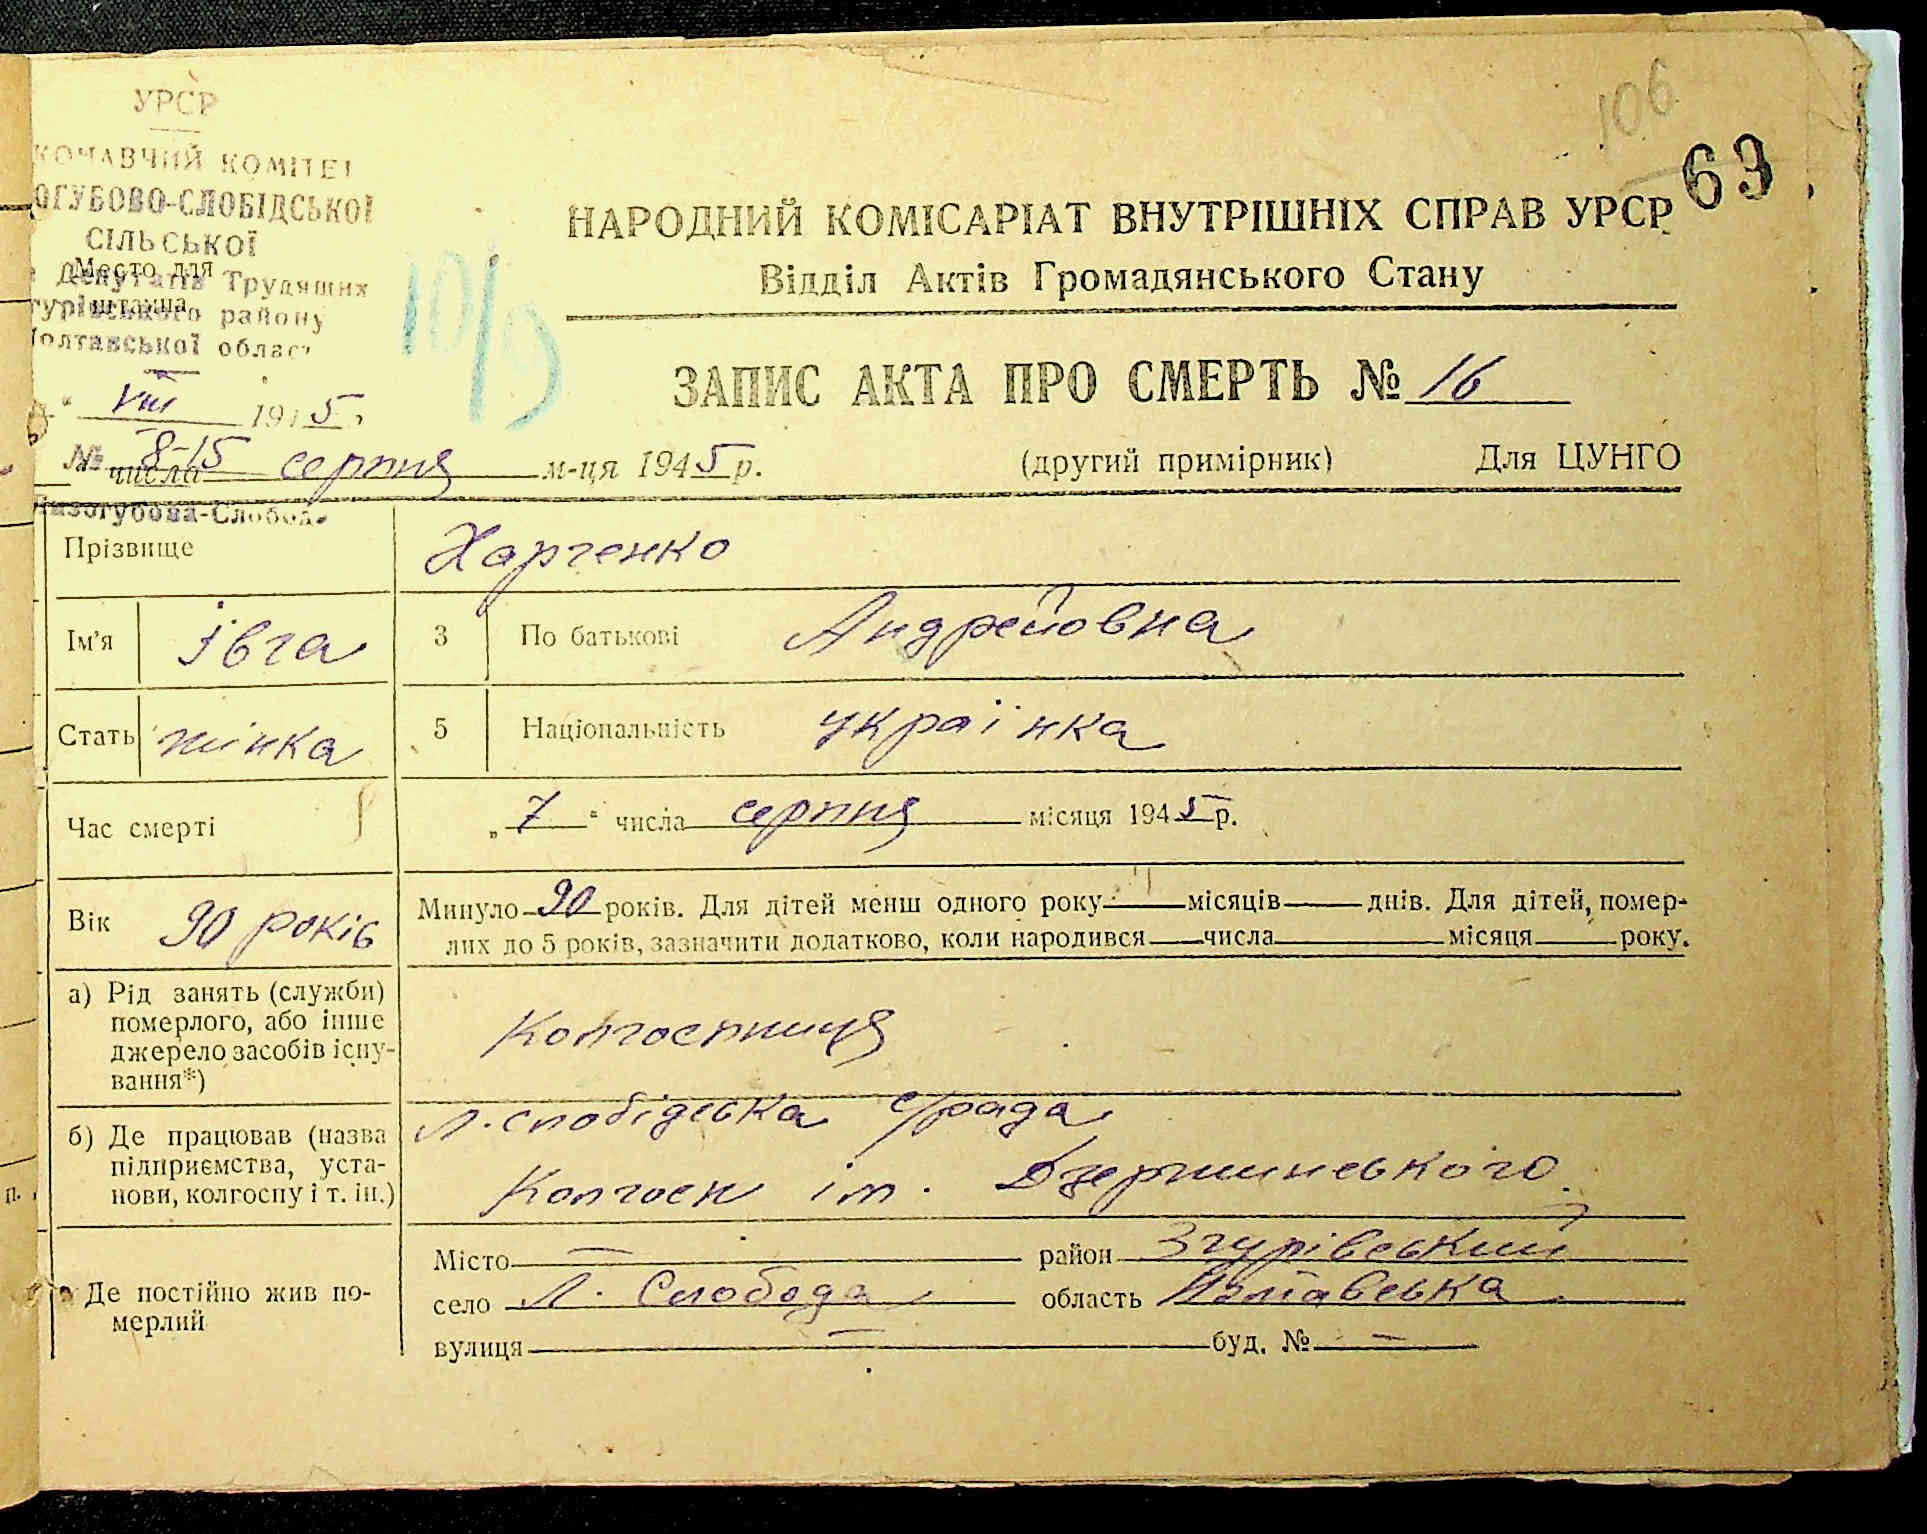 106
63
УРСР
КОНАВЧИЙ КОМІТЕТ
ОГУБОВО-СЛОБІДСЬКОЇ
СІЛЬСЬКОЇ
Депутатів Трудящих
Место для
штампа
району
Полтавської област
VIII 1945
№ 8-15
10/9
НАРОДНИЙ КОМІСАРІАТ ВНУТРІШНІХ СПРАВ УРСР
Відділ Актів Громадянського Стану
ЗАПИС АКТА ПРО СМЕРТЬ № 16
числа серпня м-ця 1945 р. (другий примірник) Для ЦУНГО
Лизогубова-Слобода
Прізвище Харченко
Ім'я Івга 3 По батькові Андрейовна
Стать жінка 5 Національність українка
Час смерті „7“ числа серпня місяця 1945 р.
Вік 90 років Минуло 90 років. Для дітей менш одного року місяців днів. Для дітей, помер-
лих до 5 років, зазначити додатково, коли народився числа місяця року.
а) Рід занять (служби)
померлого, або інше
джерело засобів існу-
вання*)
Колгоспниця
б) Де працював (назва
підприємства, уста-
нови, колгоспу і т. ін.)
Л. слобідська с/рада
Колгосп ім. Дзержинського.
Де постійно жив по-
мерлий
Місто — район Згурівський
село Л. Слобода область Полтавська
вулиця — буд. № —
п.